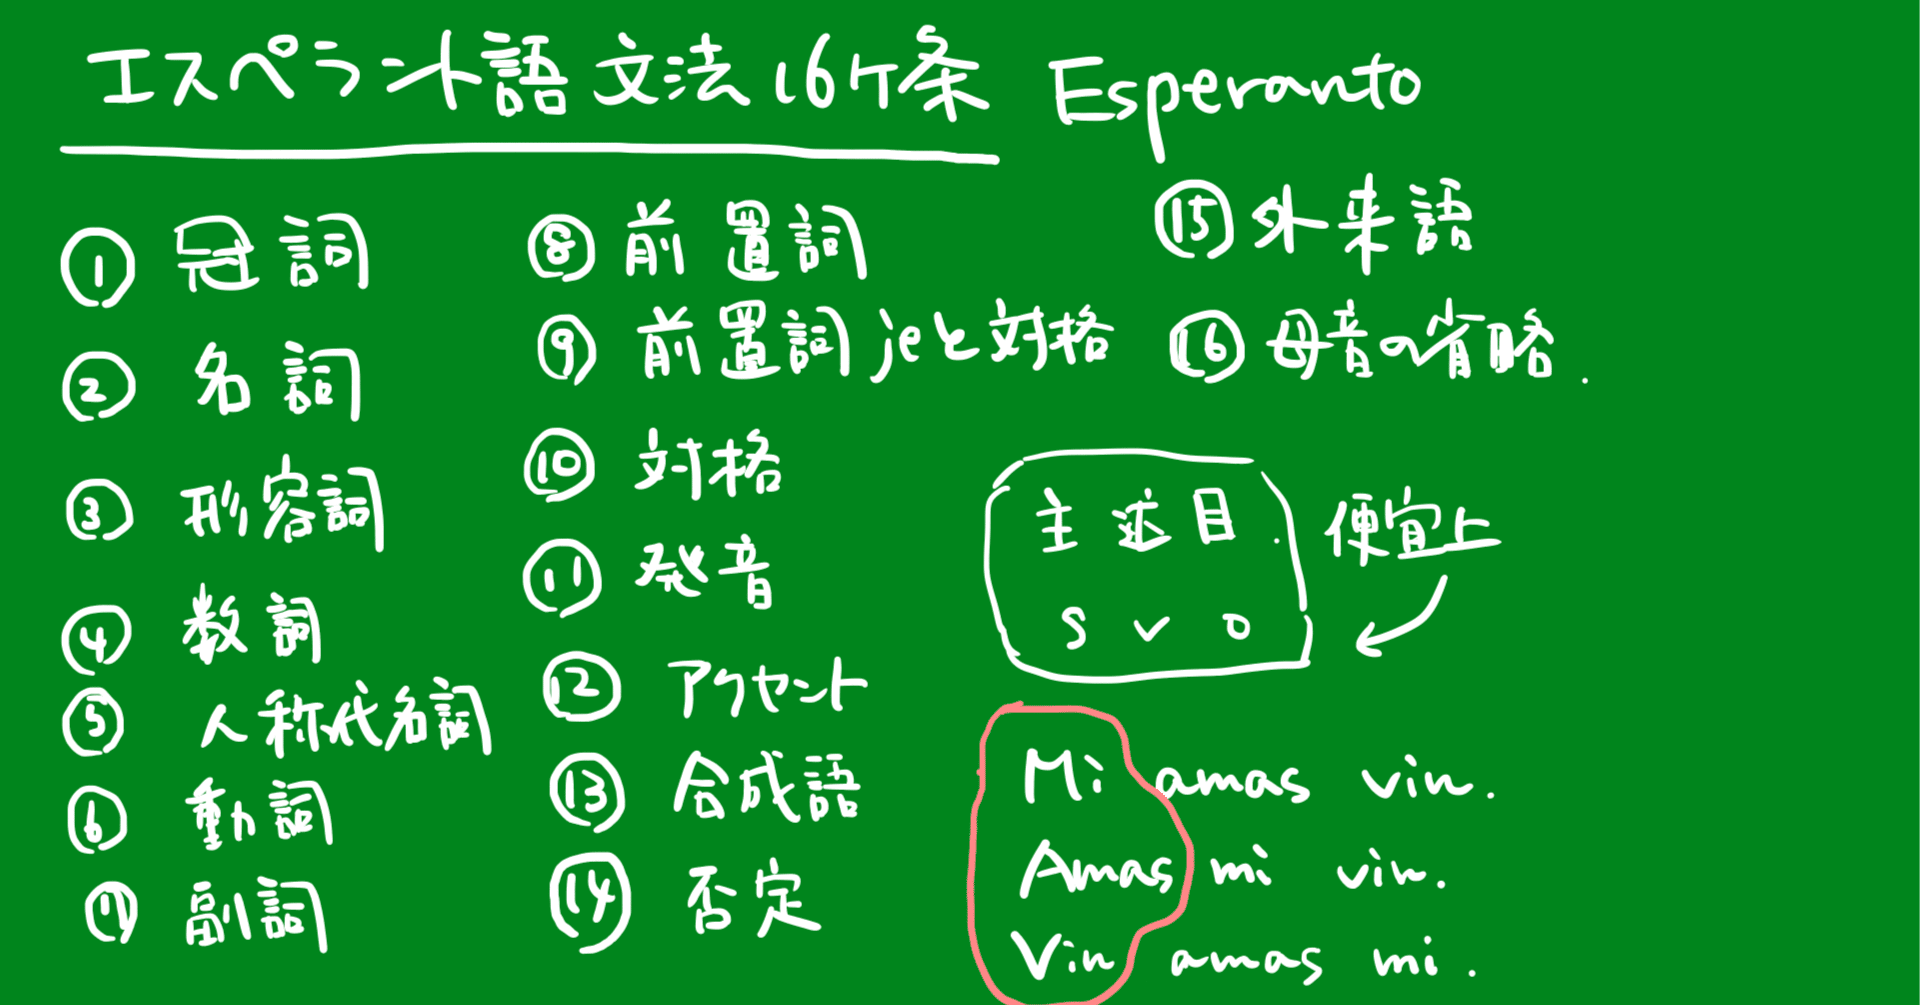 エスペラント語文法16ケ条 Esperanto
① 冠詞
② 名詞
③ 形容詞
④ 数詞
⑤ 人称代名詞
⑥ 動詞
⑦ 副詞
⑧ 前置詞
⑨ 前置詞jeと対格
⑩ 対格
⑪ 発音
⑫ アクセント
⑬ 合成語
⑭ 否定
⑮ 外来語
⑯ 母音の省略.
主述目.
S V O
便宜上
Mi amas vin.
Amas mi vin.
Vin amas mi.